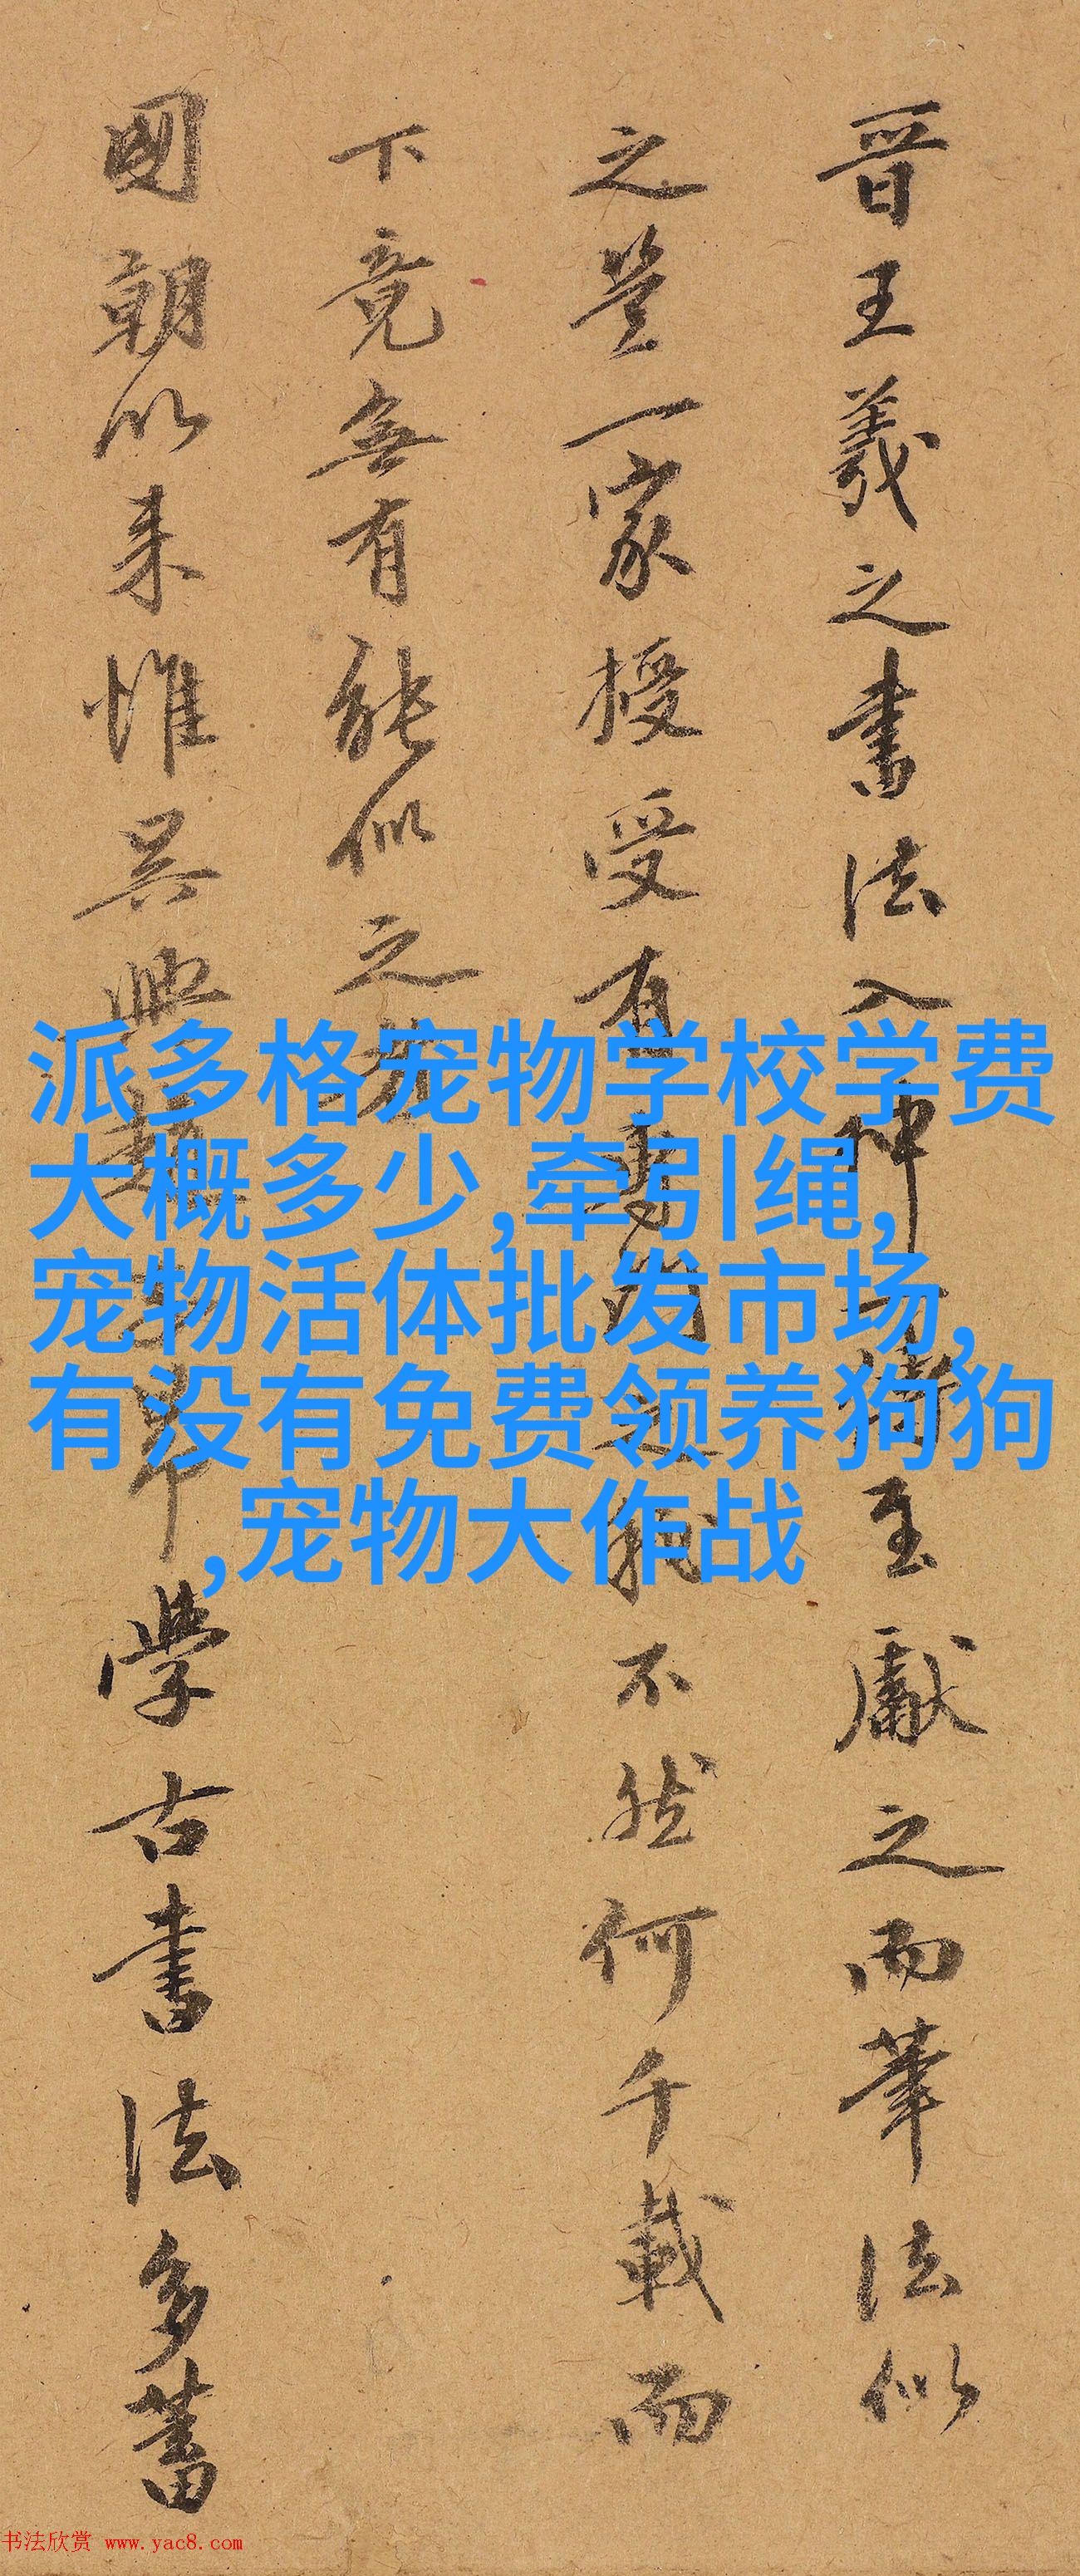 晋王羲之书法入神
至献之而笔法似
之岂一家授受自
不然何千载而
下竟无有能似之
国朝以来惟吴兴赵
学古书法多蓄
派多格宠物学校学费
大概多少,牵引绳,
宠物活体批发市场,
有没有免费领养狗狗
,宠物大作战
书法欣赏 www.yac8.com